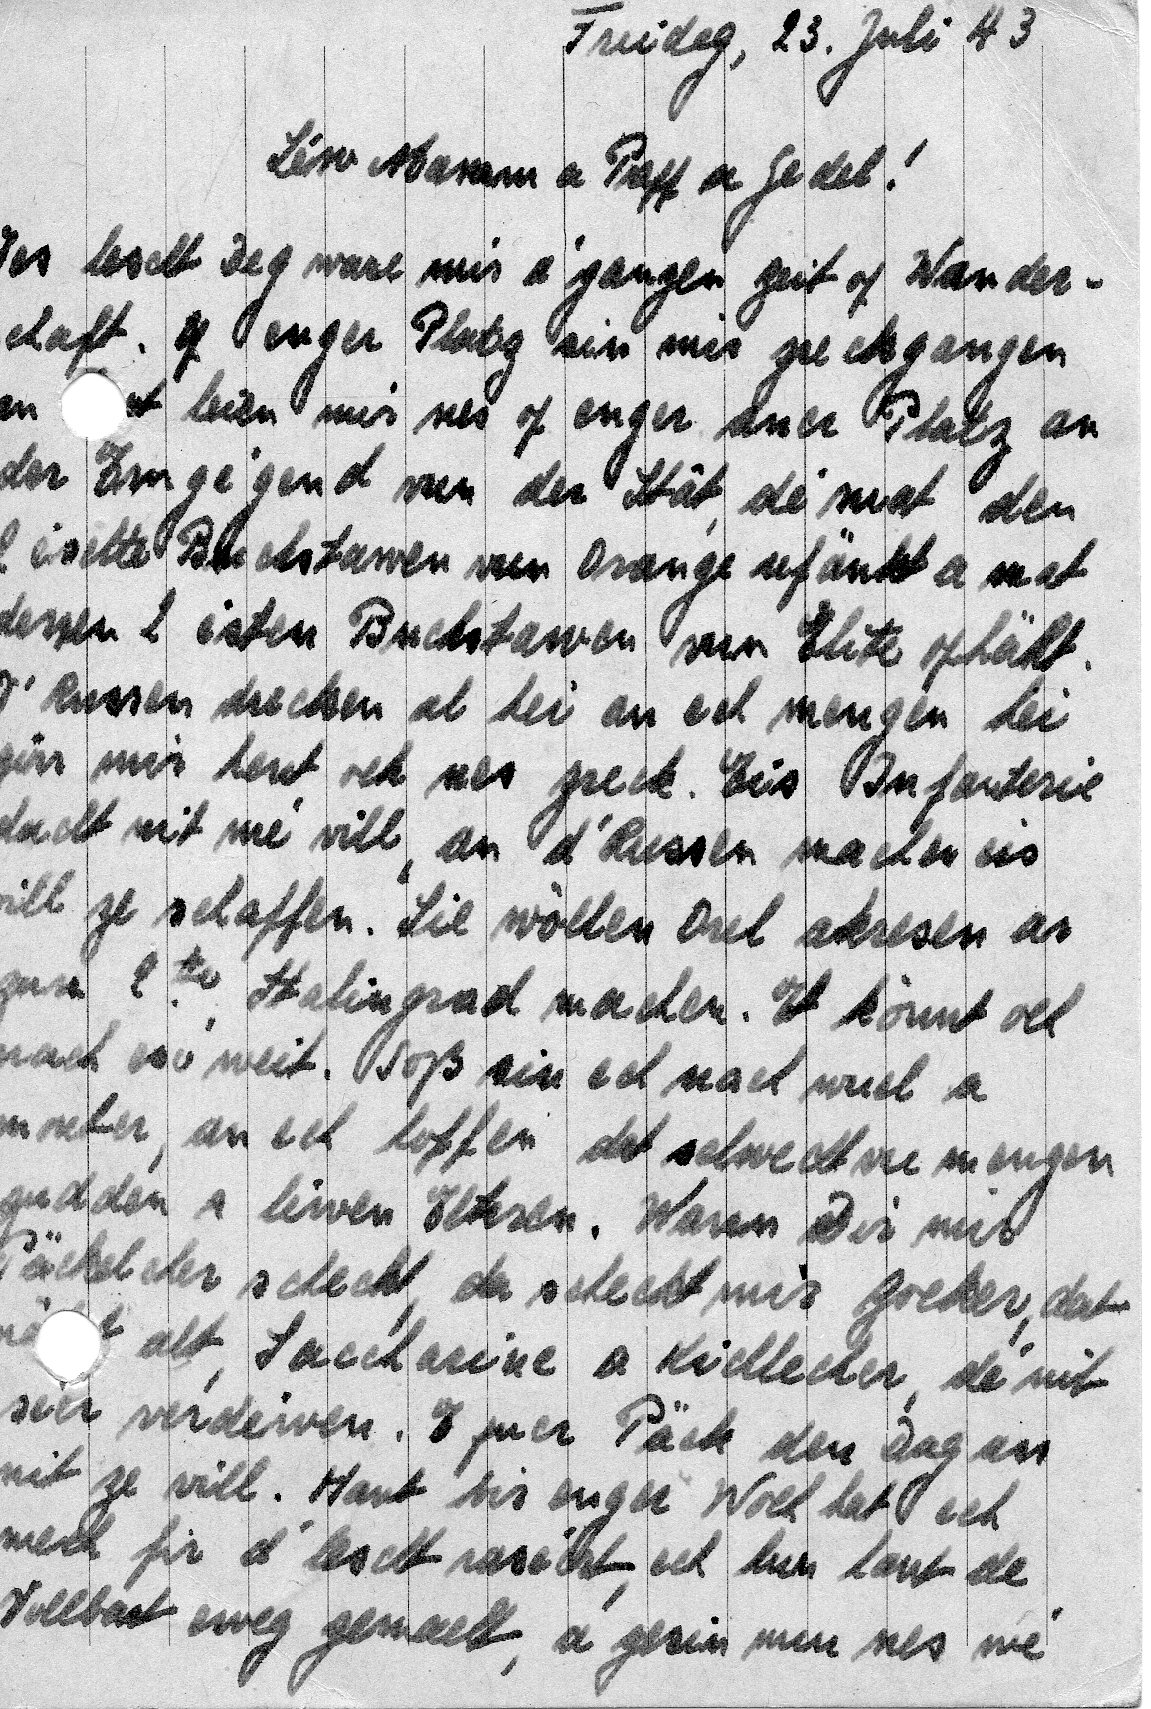 Freideg, 23. Juli 43
Léiw Mamm a Papp a Jedel!
lescht Deg ware mir a'ganzen zeit of Wander-
schaft. Of enger Platz sin mir zreckgangen
an leien mir nes of enger aner Platz an
der Emgégend vun der Stât, dé mat den
éischte Buchstawen vun Orange ufänkt a mat
denen 2 isten Buchstawen vun Elite ophält.
D'Russen drecken al hei an ech mengen hei
gin mir haut och nes zreck. Eis Infanterie
dacht nit mé vill, an d'Russen machen eis
vill ze schaffen. Sie wöllen Orel akresen an
zum 2te Stalingrad machen. Et könnt och
nach eso weit. Soß sin ech nach wuel a
monter, an ech hoffen dat selwecht vu mengen
gudden a léiwen Elteren. Wann Dir mir
Päckelcher scheckt, da scheckt mir Zocker, dat
alt, Saccharine a Kichlecher, dé nit
séier verdéiwen. E puer Päck den Dag an
nit ze vill. Haut virun enger Woch hat ech
mech fir d'lescht raséiert, ech hun haut de
Vollbart eweg gemacht, a gesin nun nes wé